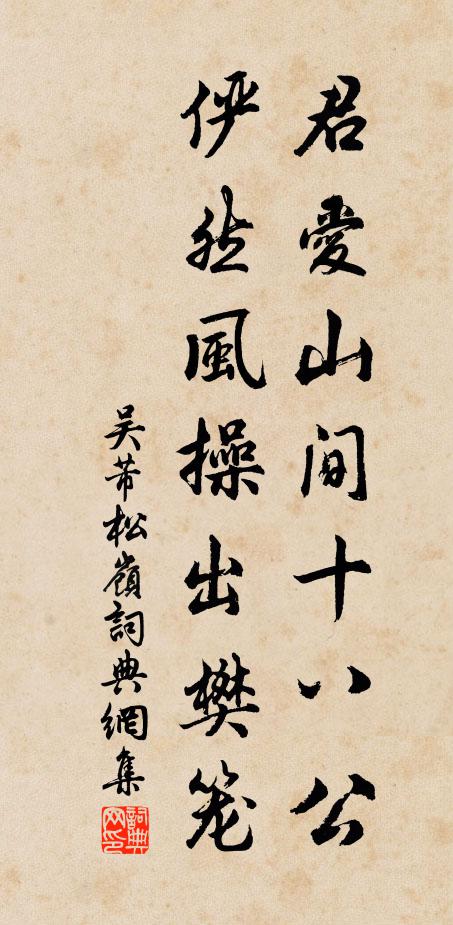 君愛山間十八公
俨然風操出樊笼
吴芾松嶺詞典網集
詞典網印